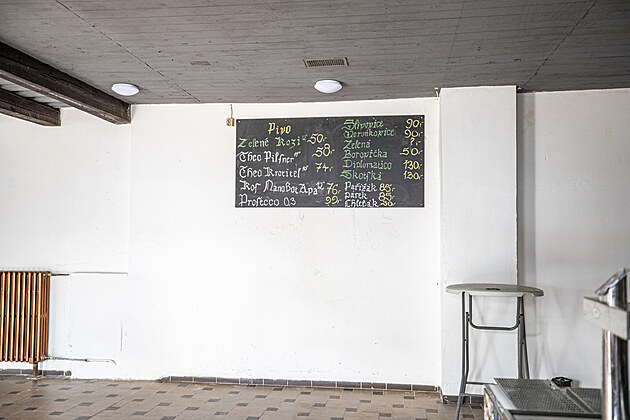 Pivo
Zelené Kozí 50,-
Cheo Pilsner 58,-
Cheo Krotitel 74,-
Kof NanoBot Apa 76,-
Prosecco 0,3 99,-
Slivovice 90,-
Meruňkovice 90,-
Zelená ?,-
Borovička 50,-
Diplomatico 130,-
Skotská 130,-
Pařížák 85,-
Párek
Chlebák